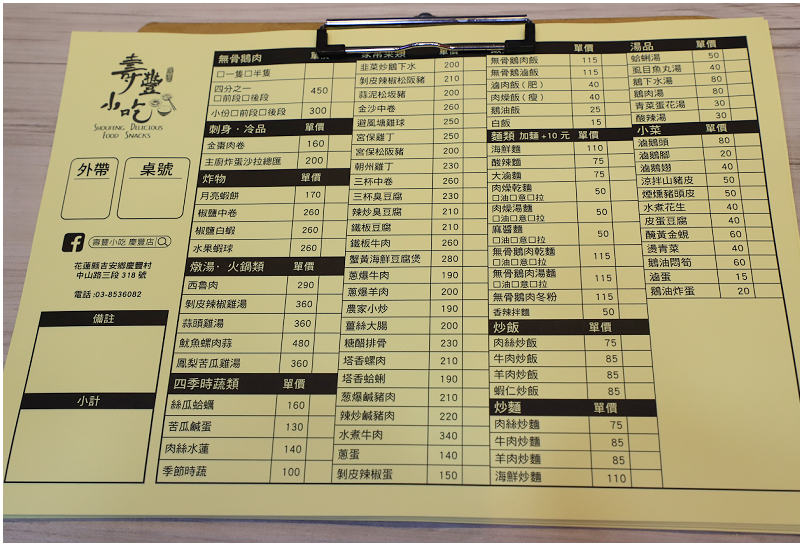 壽豐
小吃
SHOUFENG DELICIOUS
FOOD SNACKS
外帶
桌號
壽豐小吃 慶豐店
花蓮縣吉安鄉慶豐村
中山路三段 318 號
電話 :03-8536082
備註
小計
無骨鵝肉 單價
□一隻□半隻
四分之一
□前段□後段 450
小份□前段□後段 300
刺身·冷品 單價
金棗肉卷 160
主廚炸蛋沙拉總匯 200
炸物 單價
月亮蝦餅 170
椒鹽中卷 260
椒鹽白蝦 260
水果蝦球 260
燉湯·火鍋類 單價
西魯肉 290
剝皮辣椒雞湯 360
蒜頭雞湯 360
魷魚螺肉蒜 480
鳳梨苦瓜雞湯 360
四季時蔬類 單價
絲瓜蛤蠣 160
苦瓜鹹蛋 130
肉絲水蓮 140
季節時蔬 100
家常菜類
韭菜炒鵝下水 200
剝皮辣椒松阪豬 210
蒜泥松坂豬 200
金沙中卷 260
避風塘雞球 250
宮保雞丁 250
宮保松阪豬 200
朝州雞丁 230
三杯中卷 260
三杯臭豆腐 230
辣炒臭豆腐 210
鐵板豆腐 210
鐵板牛肉 260
蟹黃海鮮豆腐煲 280
蔥爆牛肉 190
蔥爆羊肉 200
農家小炒 190
薑絲大腸 200
糖醋排骨 230
塔香螺肉 210
塔香蛤蜊 190
蔥爆鹹豬肉 210
辣炒鹹豬肉 220
水煮牛肉 340
蔥蛋 140
剝皮辣椒蛋 150
單價
無骨鵝肉飯 115
無骨鵝滷飯 115
滷肉飯（肥） 40
肉燥飯（瘦） 40
鵝油飯 25
白飯 15
麵類 加麵+10元 單價
海鮮麵 110
酸辣麵 75
大滷麵 75
肉燥乾麵
□油□意□拉 50
肉燥湯麵
□油□意□拉 50
麻醬麵
□油□意□拉 50
無骨鵝肉乾麵
□油□意□拉 115
無骨鵝肉湯麵
□油□意□拉 115
無骨鵝肉冬粉 115
香辣拌麵 50
炒飯 單價
肉絲炒飯 75
牛肉炒飯 85
羊肉炒飯 85
蝦仁炒飯 85
炒麵 單價
肉絲炒麵 75
牛肉炒麵 85
羊肉炒麵 85
海鮮炒麵 110
湯品 單價
蛤蜊湯 50
虱目魚丸湯 40
鵝下水湯 80
鵝肉湯 80
青菜蛋花湯 30
酸辣湯 30
小菜 單價
滷鵝頭 80
滷鵝腳 20
滷鵝翅 40
涼拌山豬皮 50
煙燻豬頭皮 50
水煮花生 40
皮蛋豆腐 40
醃黃金蜆 60
燙青菜 40
鵝油悶筍 60
滷蛋 15
鵝油炸蛋 20